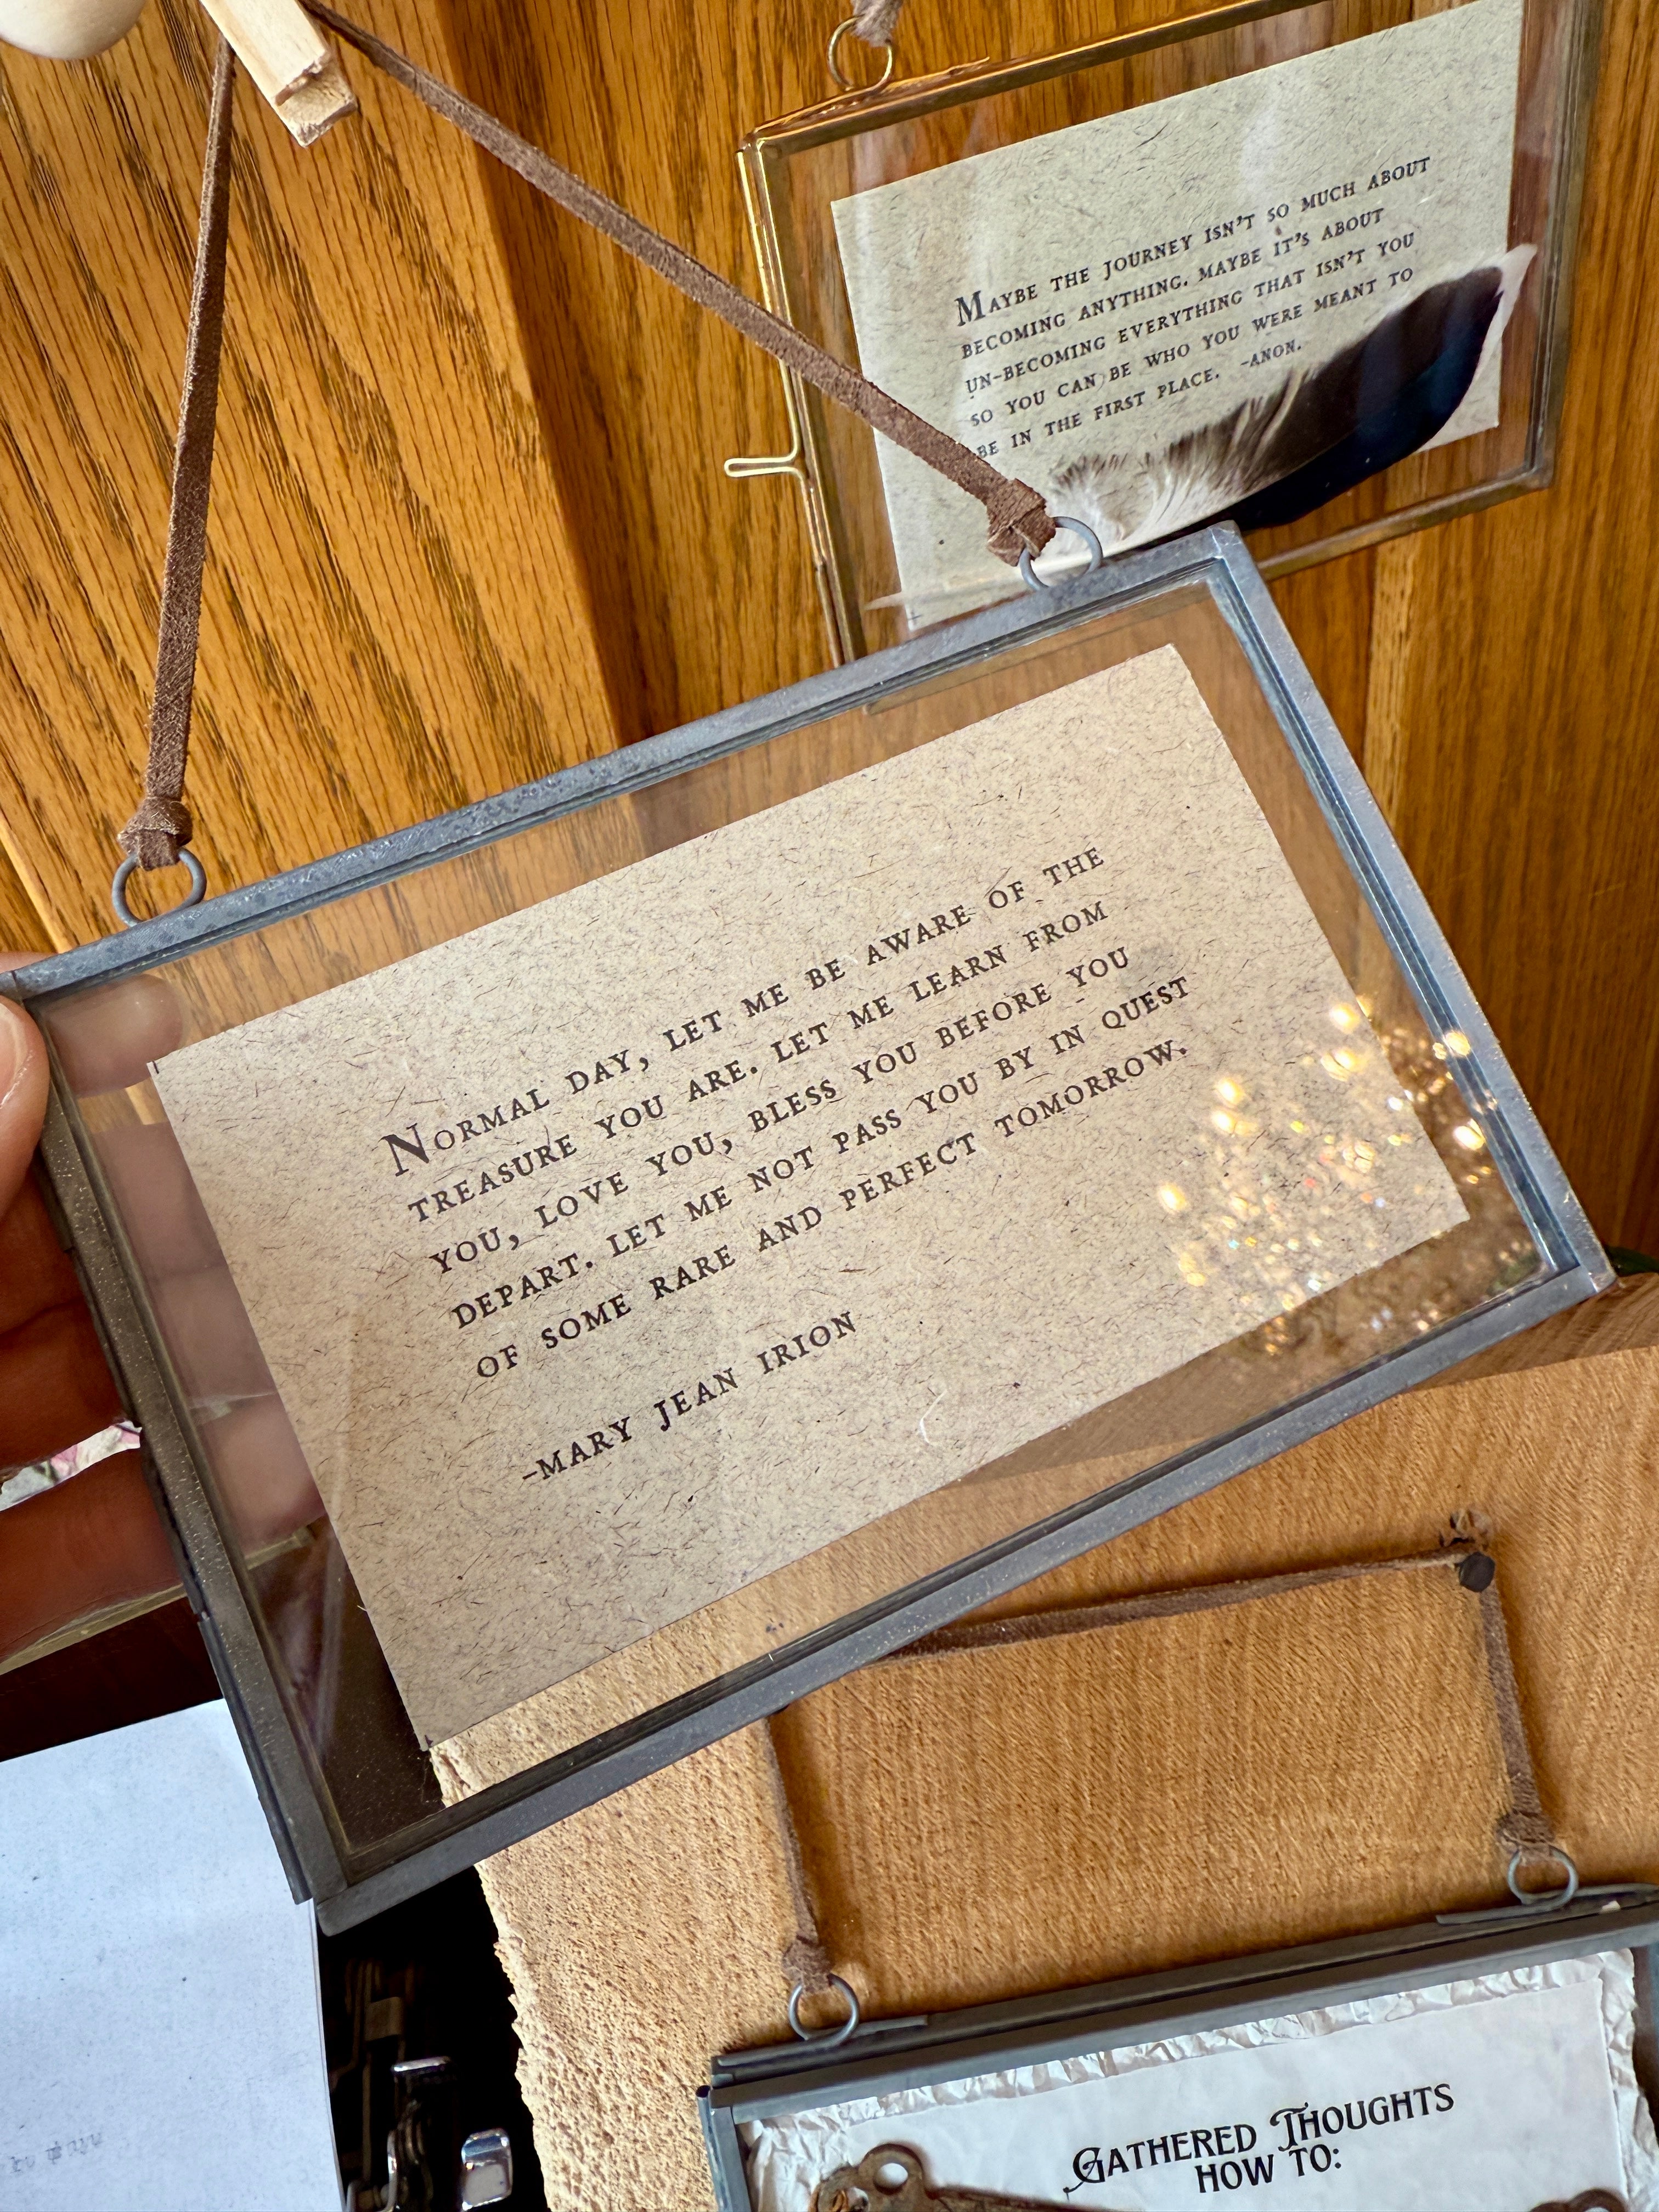 Maybe the journey isn't so much about
becoming anything. Maybe it's about
un-becoming everything that isn't you
so you can be who you were meant to
be in the first place. -Anon.
Normal day, let me be aware of the
treasure you are. Let me learn from
you, love you, bless you before you
depart. Let me not pass you by in quest
of some rare and perfect tomorrow.
-Mary Jean Irion
Gathered Thoughts
How to: